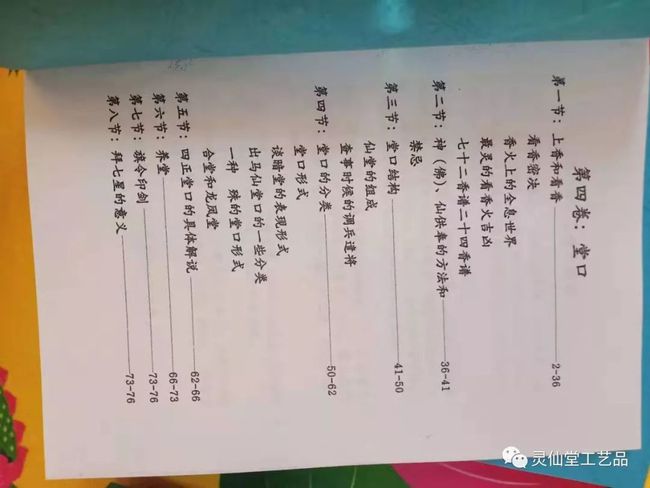 第四卷：堂口
第一节：上香和看香————2-36
看香密决
香火上的全息世界
最灵的看香火吉凶
七十二香谱二十四香谱
第二节：神（佛）、仙供奉的方法和————36-41
禁忌
第三节：堂口结构————41-50
仙堂的组成
查事时候的调兵遣将
第四节：堂口的分类————50-62
堂口形式
谈暗堂的表现形式
出马仙堂口的一些分类
一种 殊的堂口形式
合堂和龙凤堂
第五节：四正堂口的具体解说————62-66
第六节：养堂————66-73
第七节：旗令印剑————73-76
第八节：拜七星的意义————73-76
灵仙堂工艺品